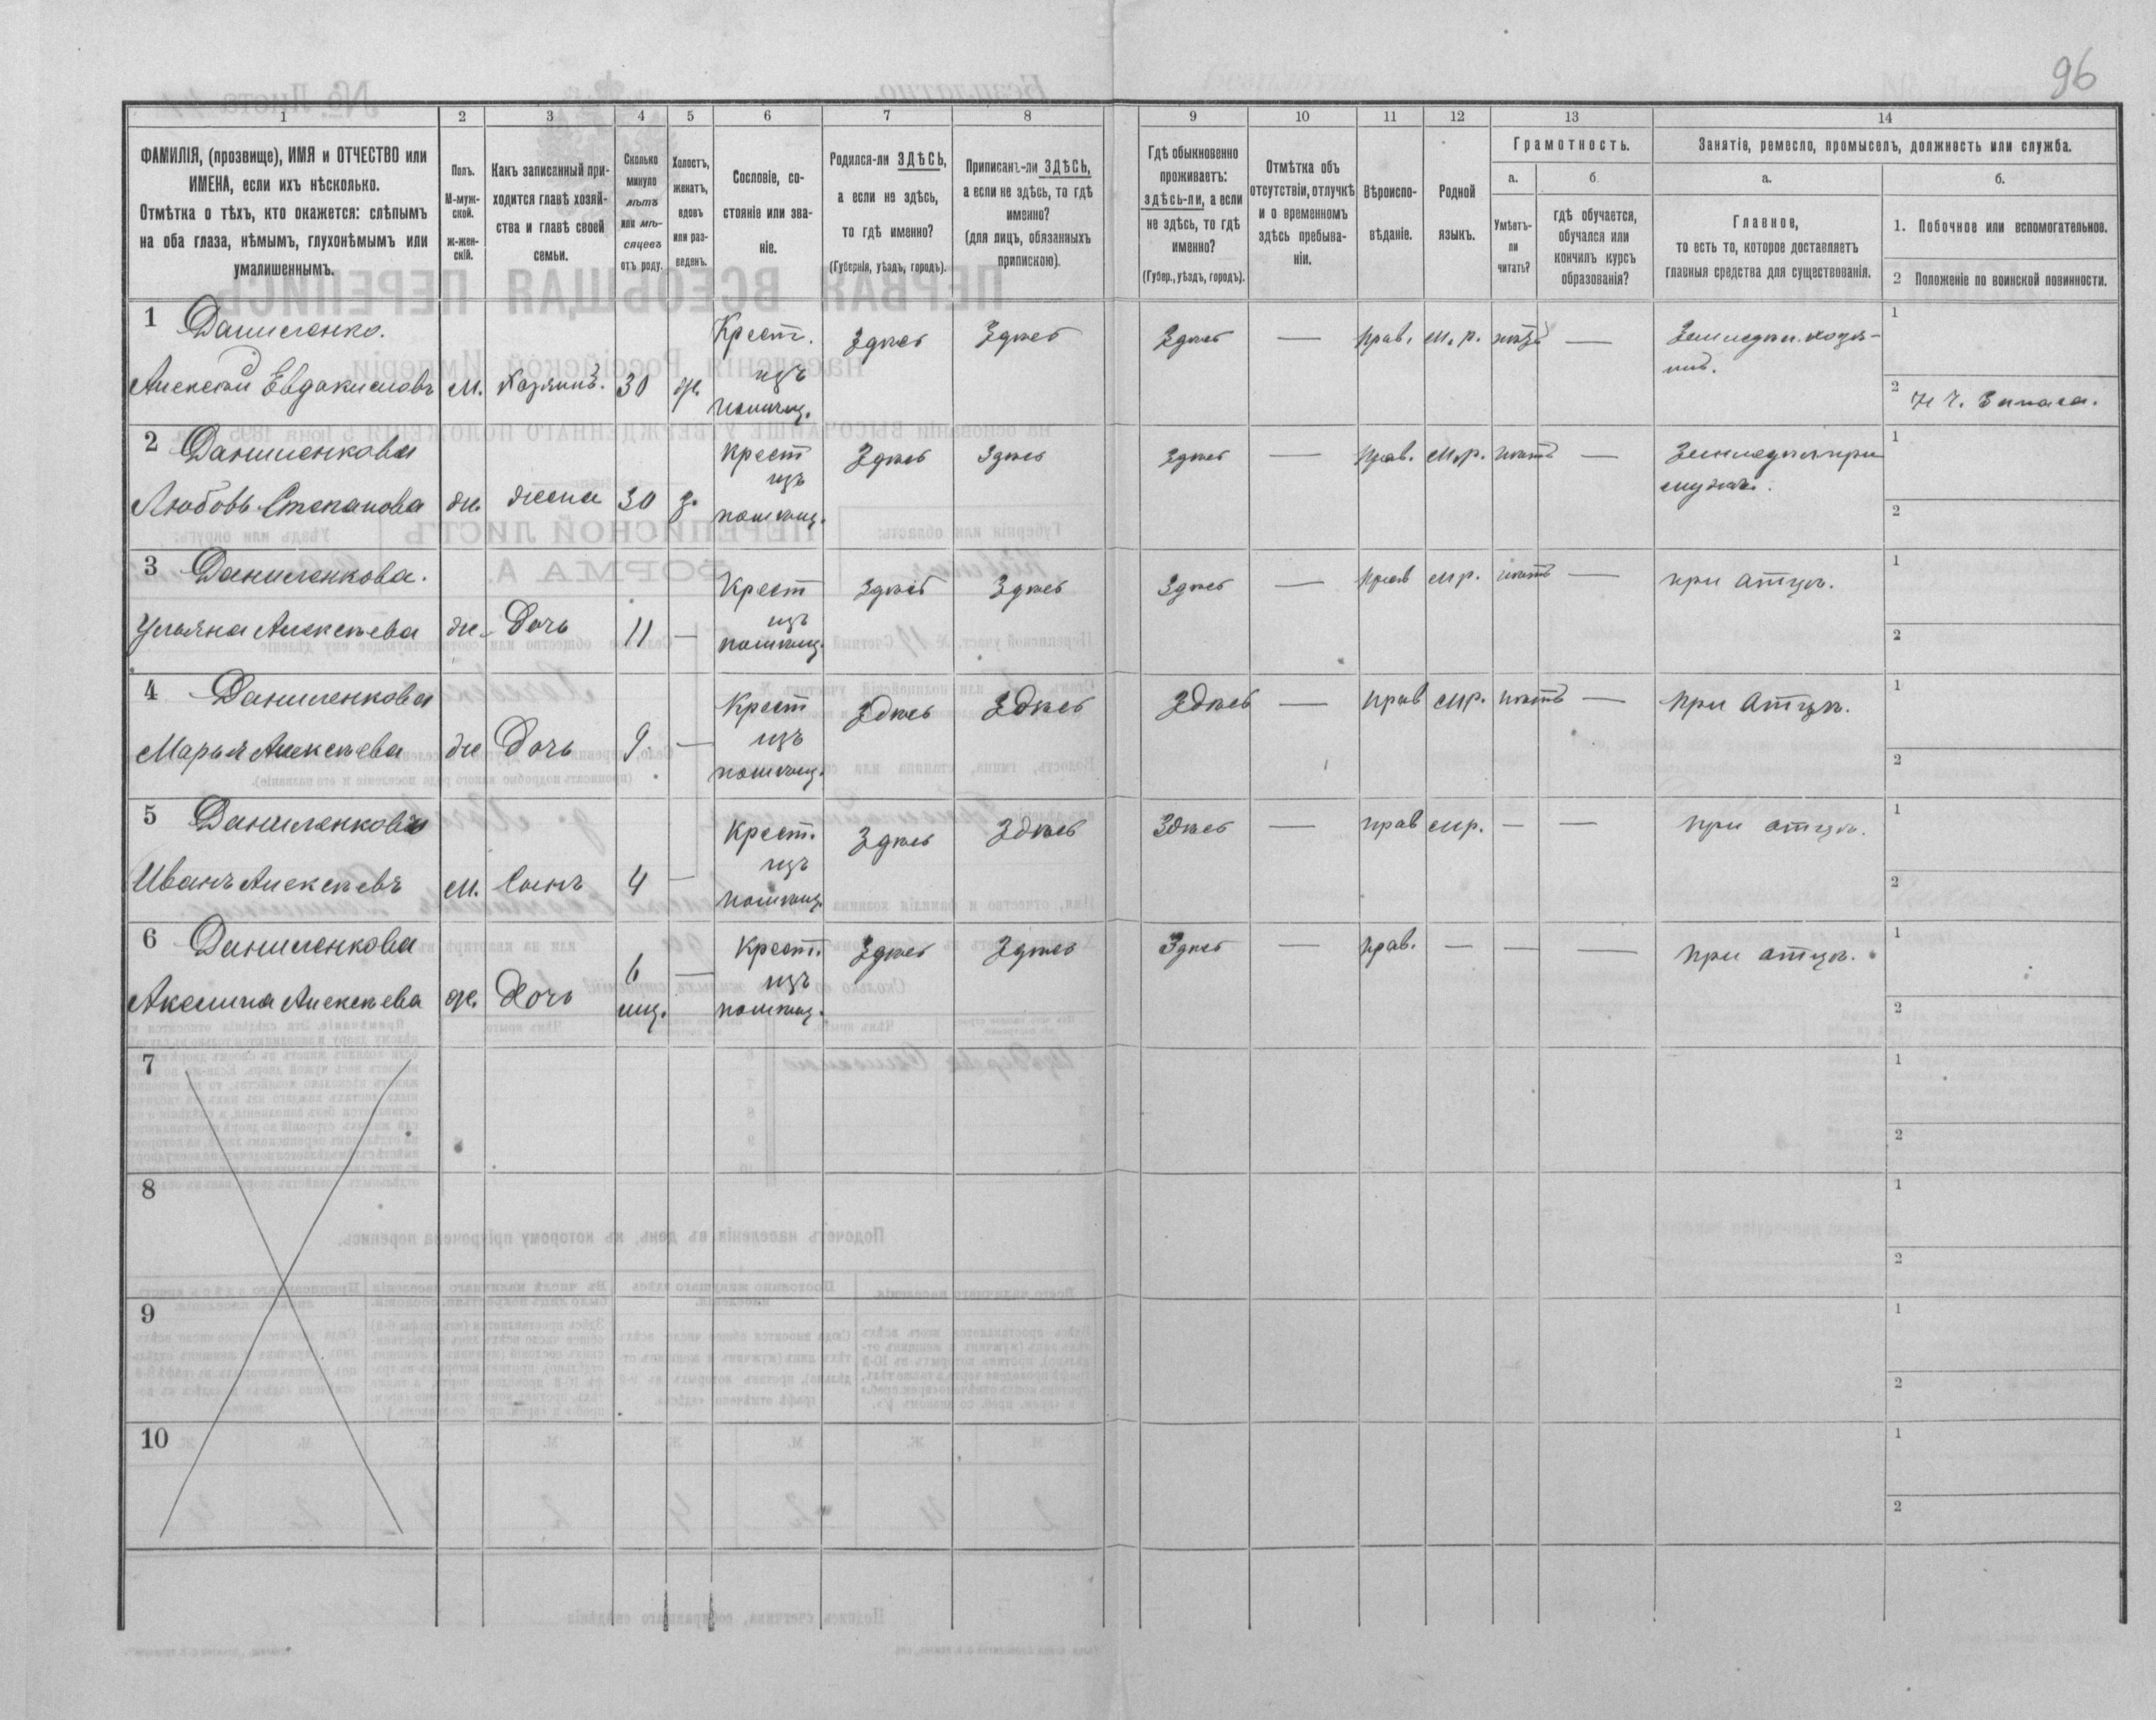 96
1 2 3 4 5 6 7 8 9 10 11 12 13 14
ФАМИЛІЯ, (прозвище), ИМЯ и ОТЧЕСТВО или
ИМЕНА, если ихъ нѣсколько.
Отмѣтка о тѣхъ, кто окажется: слѣпымъ
на оба глаза, нѣмымъ, глухонѣмымъ или
умалишеннымъ.
Полъ.
М-муж-
ской.
ж-жен-
скій.
Какъ записанный при-
ходится главѣ хозяй-
ства и главѣ своей
семьи.
Сколько
минуло
лѣтъ
или мѣ-
сяцевъ
отъ роду.
Холостъ,
женатъ,
вдовъ
или раз-
веденъ.
Сословіе, со-
стояніе или зва-
ніе.
Родился-ли ЗДѢСЬ,
а если не здѣсь,
то гдѣ именно?
(Губернія, уѣздъ, городъ).
Приписанъ-ли ЗДѢСЬ,
а если не здѣсь, то гдѣ
именно?
(для лицъ, обязанныхъ
припискою).
Гдѣ обыкновенно
проживаетъ:
здѣсь-ли, а если
не здѣсь, то гдѣ
именно?
(Губер., уѣздъ, городъ).
Отмѣтка объ
отсутствіи, отлучкѣ
и о временномъ
здѣсь пребыва-
ніи.
Вѣроиспо-
вѣданіе.
Родной
языкъ.
Грамотность.
а.
Умѣетъ-
ли
читать?
б
гдѣ обучается,
обучался или
кончилъ курсъ
образованія?
Занятіе, ремесло, промыселъ, должность или служба.
а.
Главное,
то есть то, которое доставляетъ
главныя средства для существованія.
б.
1. Побочное или вспомогательное.
2 Положеніе по воинской повинности.
1 Даниленко.
Алексѣй Евдокимовъ м. Хозяинъ. 30 ж. Крест. изъ помѣщ. Здѣсь Здѣсь Здѣсь — Прав. м. р. нѣтъ — Земледѣл. хозя-
инъ.
1
2
2 Даниленкова
Любовь Степанова ж. жена 30 з. Крест изъ помѣщ. Здѣсь Здѣсь Здѣсь — Прав. м.р. нѣтъ —
1
2
3 Даниленкова.
Ульяна Алексѣева ж. Дочь 11 — Крест изъ помѣщ. Здѣсь Здѣсь Здѣсь — Прав мр. нѣтъ — при атцѣ.
1
2
4 Даниленкова
Марья Алексѣева ж Дочь 9. — Крест изъ помѣщ. Здѣсь Здѣсь Здѣсь — Прав мр. нѣтъ — При Атцѣ.
1
2
5 Даниленковъ
Иванъ Алексѣевъ м. Сынъ 4 — Крест. изъ помѣщ. Здѣсь Здѣсь Здѣсь — прав мр. — — при атцѣ.
1
2
6 Даниленкова
Акелина Алексѣева ж. Дочь 6 мц. — Крест. изъ помѣщ. Здѣсь Здѣсь Здѣсь — Прав. — — — при атцѣ.
1
2
7
1
2
8
1
2
9
1
2
10
1
2